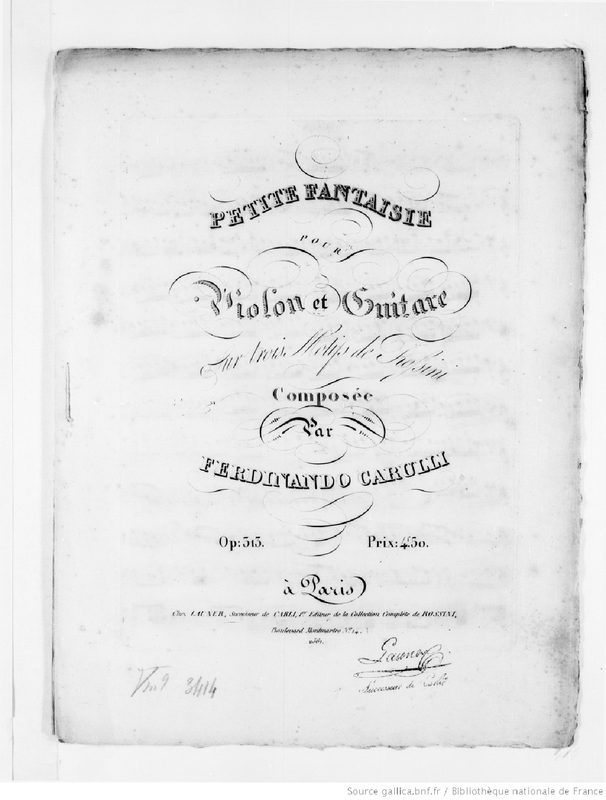 PETITE FANTAISIE
POUR
Violon et Guitare
Sur trois Motifs de
Composée
Par
FERDINANDO CARULLI
Op: 313. Prix: 4f 50.
à Paris
Chez LAUNER, Successeur de CARLI, 1er Editeur de la Collection Complète de ROSSINI,
Boulevard Montmartre No. 14.
Launer
Successeur de Carli
Vm9 3414
Source gallica.bnf.fr / Bibliothèque nationale de France